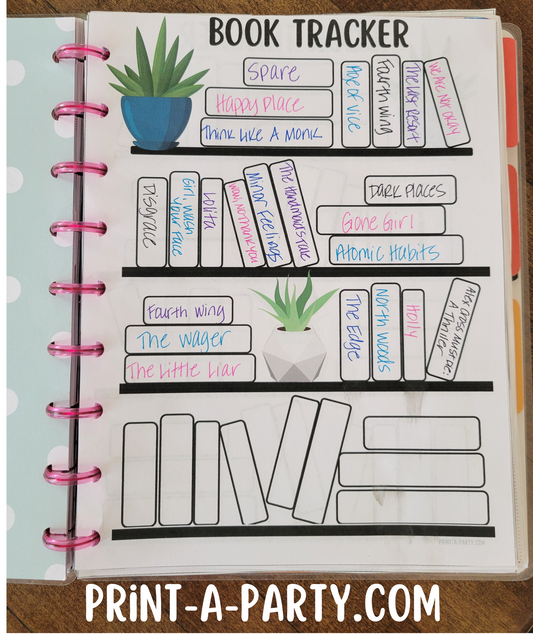 BOOK TRACKER
Spare
Happy Place
Think Like A Monk
Age of Vice
Fourth Wing
The Last Resort
We Are Not Okay
Disgrace
Girl, Wash
Your Face
Lolita
No Thank You
Minor Feelings
The Handmaid's Tale
Dark Places
Gone Girl
Atomic Habits
Fourth Wing
The Wager
The Little Liar
The Edge
North Woods
Holly
Alex Cross Must Die:
A Thriller
PRINT-A-PARTY.COM
PRINT-A-PARTY.COM